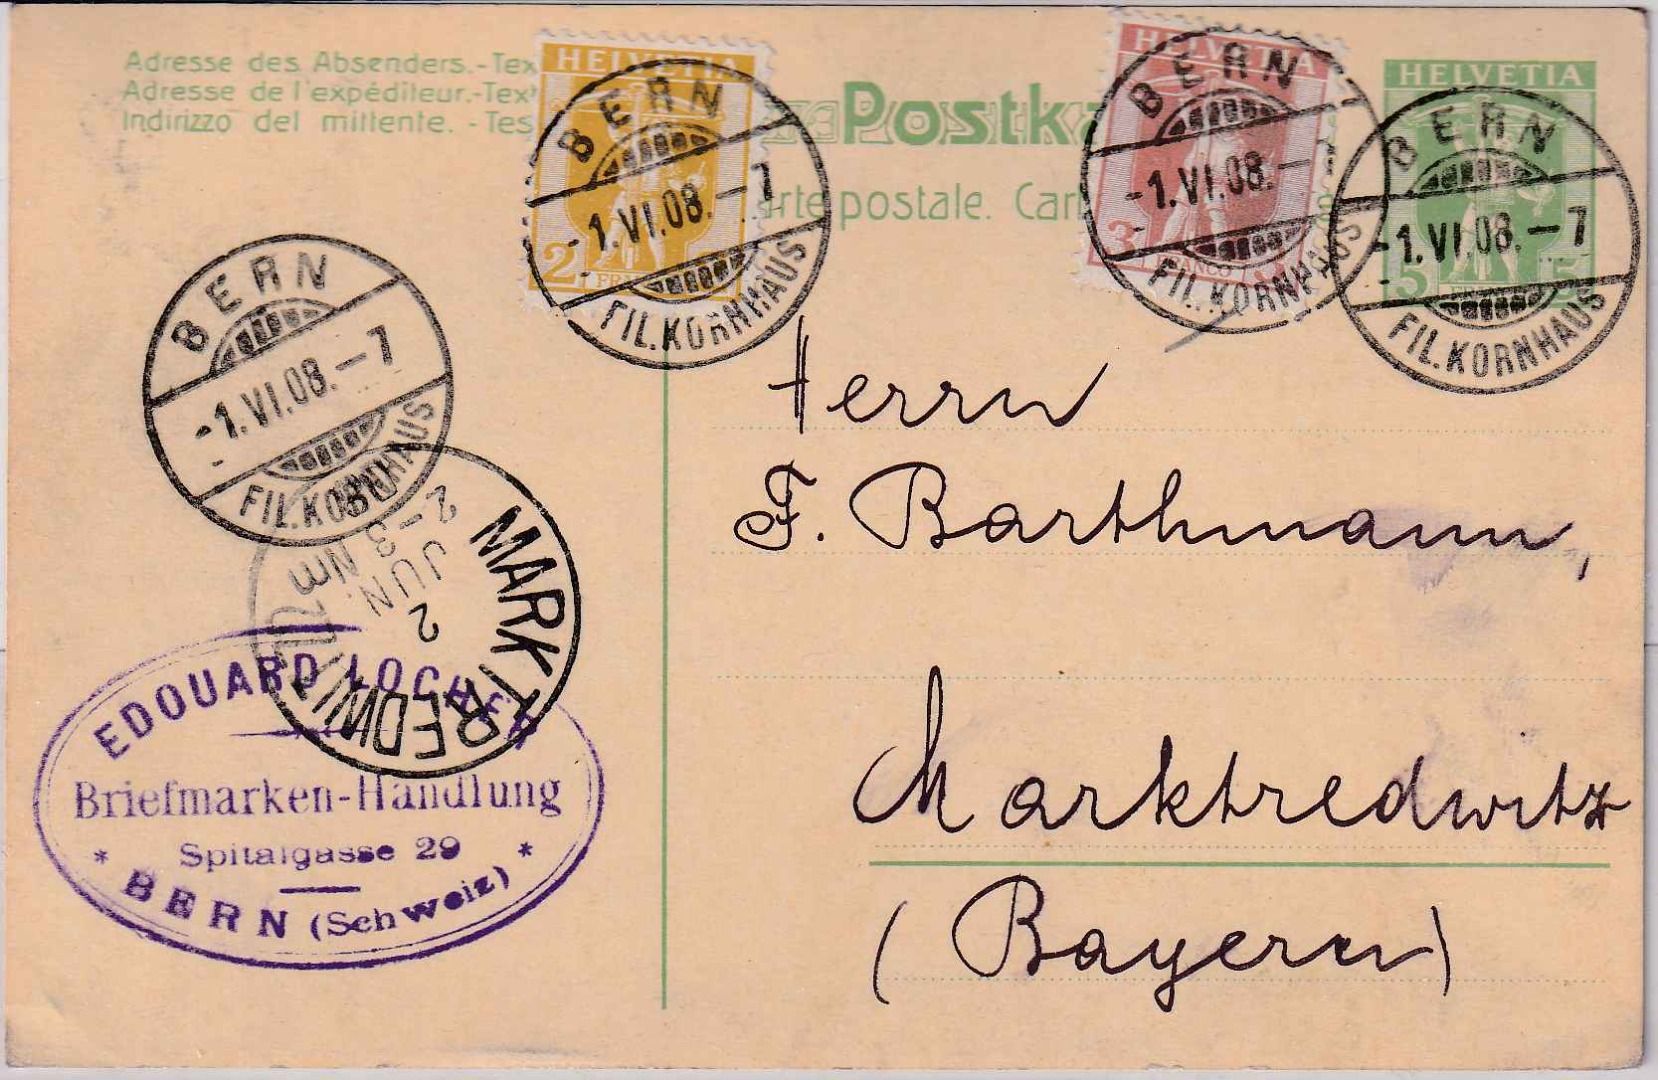 Adresse des Absenders.-Tex
Adresse de l'expéditeur.-Tex
Indirizzo del mittente. - Tes
Postka
arte postale. Car
HELVETIA
2
HELVETIA
3
FRANCO
HELVETIA
5 5
BERN
-1.VI.08.-7
FIL.KORNHAUS
BERN
-1.VI.08.-
FIL.KORNHAUS
BERN
-1.VI.08.-7
FIL.KORNHAUS
BERN
-1.VI.08.-7
FIL.KORNHAUS
MARKTREDWITZ
2
JUN
2-3 Nm
08
EDOUARD LOCHER
Briefmarken-Handlung
* Spitalgasse 29 *
BERN (Schweiz)
Herrn
F. Barthmann,
Marktredwitz
(Bayern)